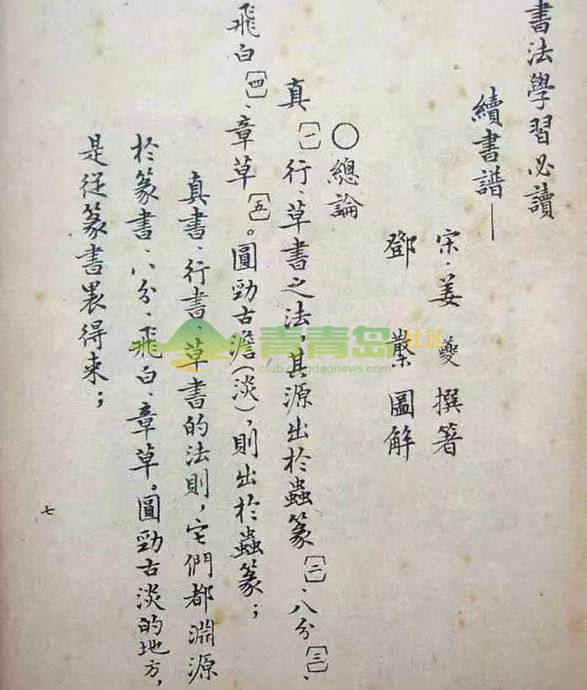 書法學習必讀
續書譜—
宋·姜夔 撰箸
鄧 圖解
〇總論
真〔一〕、行、草書之法,其源出於蟲篆〔二〕、八分〔三〕、
飛白〔四〕、章草〔五〕。圓勁古澹(淡),則出於蟲篆;
真書、行書、草書的法則,它們都淵源
於篆書、八分、飛白、章草。圓勁古淡的地方,
是從篆書裏得來;
七
青青岛社区
club.qingdaonews.com